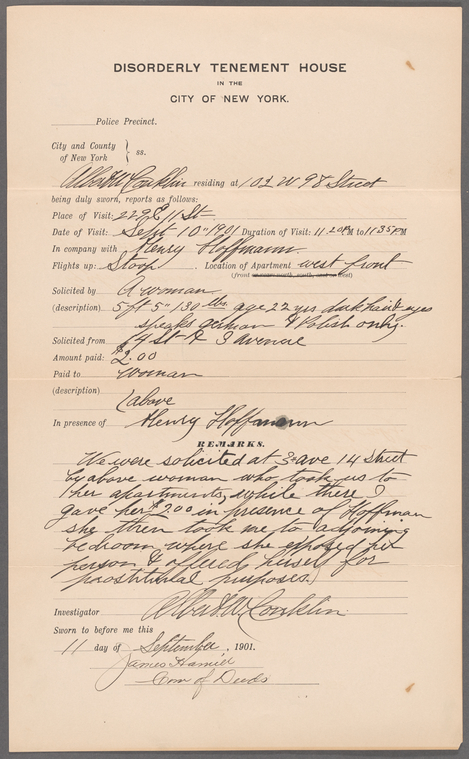 DISORDERLY TENEMENT HOUSE
IN THE
CITY OF NEW YORK.
Police Precinct.
City and County
of New York } ss.
Albert W Conklin residing at 101 W 98 Street
being duly sworn, reports as follows:
Place of Visit: 229 E 11 St
Date of Visit: Sept 10" 1901 Duration of Visit: 11.20 PM to 11 35 PM
In company with Henry Hoffmann.
Flights up: Stoop . Location of Apartment west front
(front
Solicited by A woman
(description) 5 ft 5" 130 lbs. age 22 yrs dark hair & eyes
speaks german & Polish only.
Solicited from 14 St & 3 avenue
Amount paid: $2.00
Paid to woman
(description) (above
In presence of Henry Hoffmann
REMARKS.
We were solicited at 3 ave 14 Street
by above woman who took us to
her apartments, while there I
gave her $2.00 in presence of Hoffman
she then took me to adjoining
bedroom where she exposed her
person & offered herself for
prostitutal purposes.)
Investigator Albert W. Conklin
Sworn to before me this
11 day of September, 1901.
James Hamill
Com of Deeds